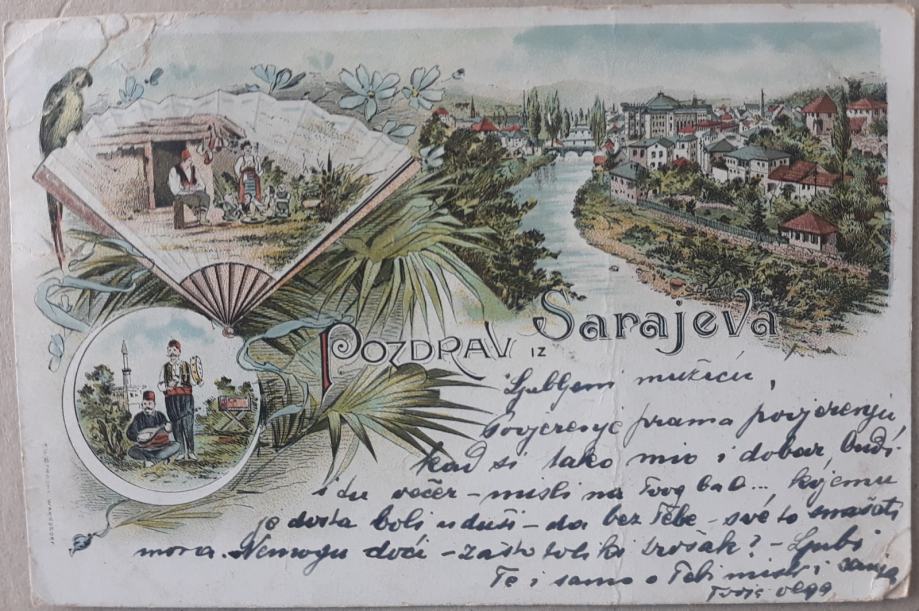 Pozdrav iz Sarajeva
Ljubljeni mužiću,
povjerenje prama povjerenju
kad si tako mio i dobar, budi
i du večer - misli na Tvog ... kojemu
je dosta boli u duši - da bez Tebe - sve to
mora. Nemogu doći - zašto toliki trošak? - Ljubi
Te i samo o Tebi misli i sanja
Tvoja Olga